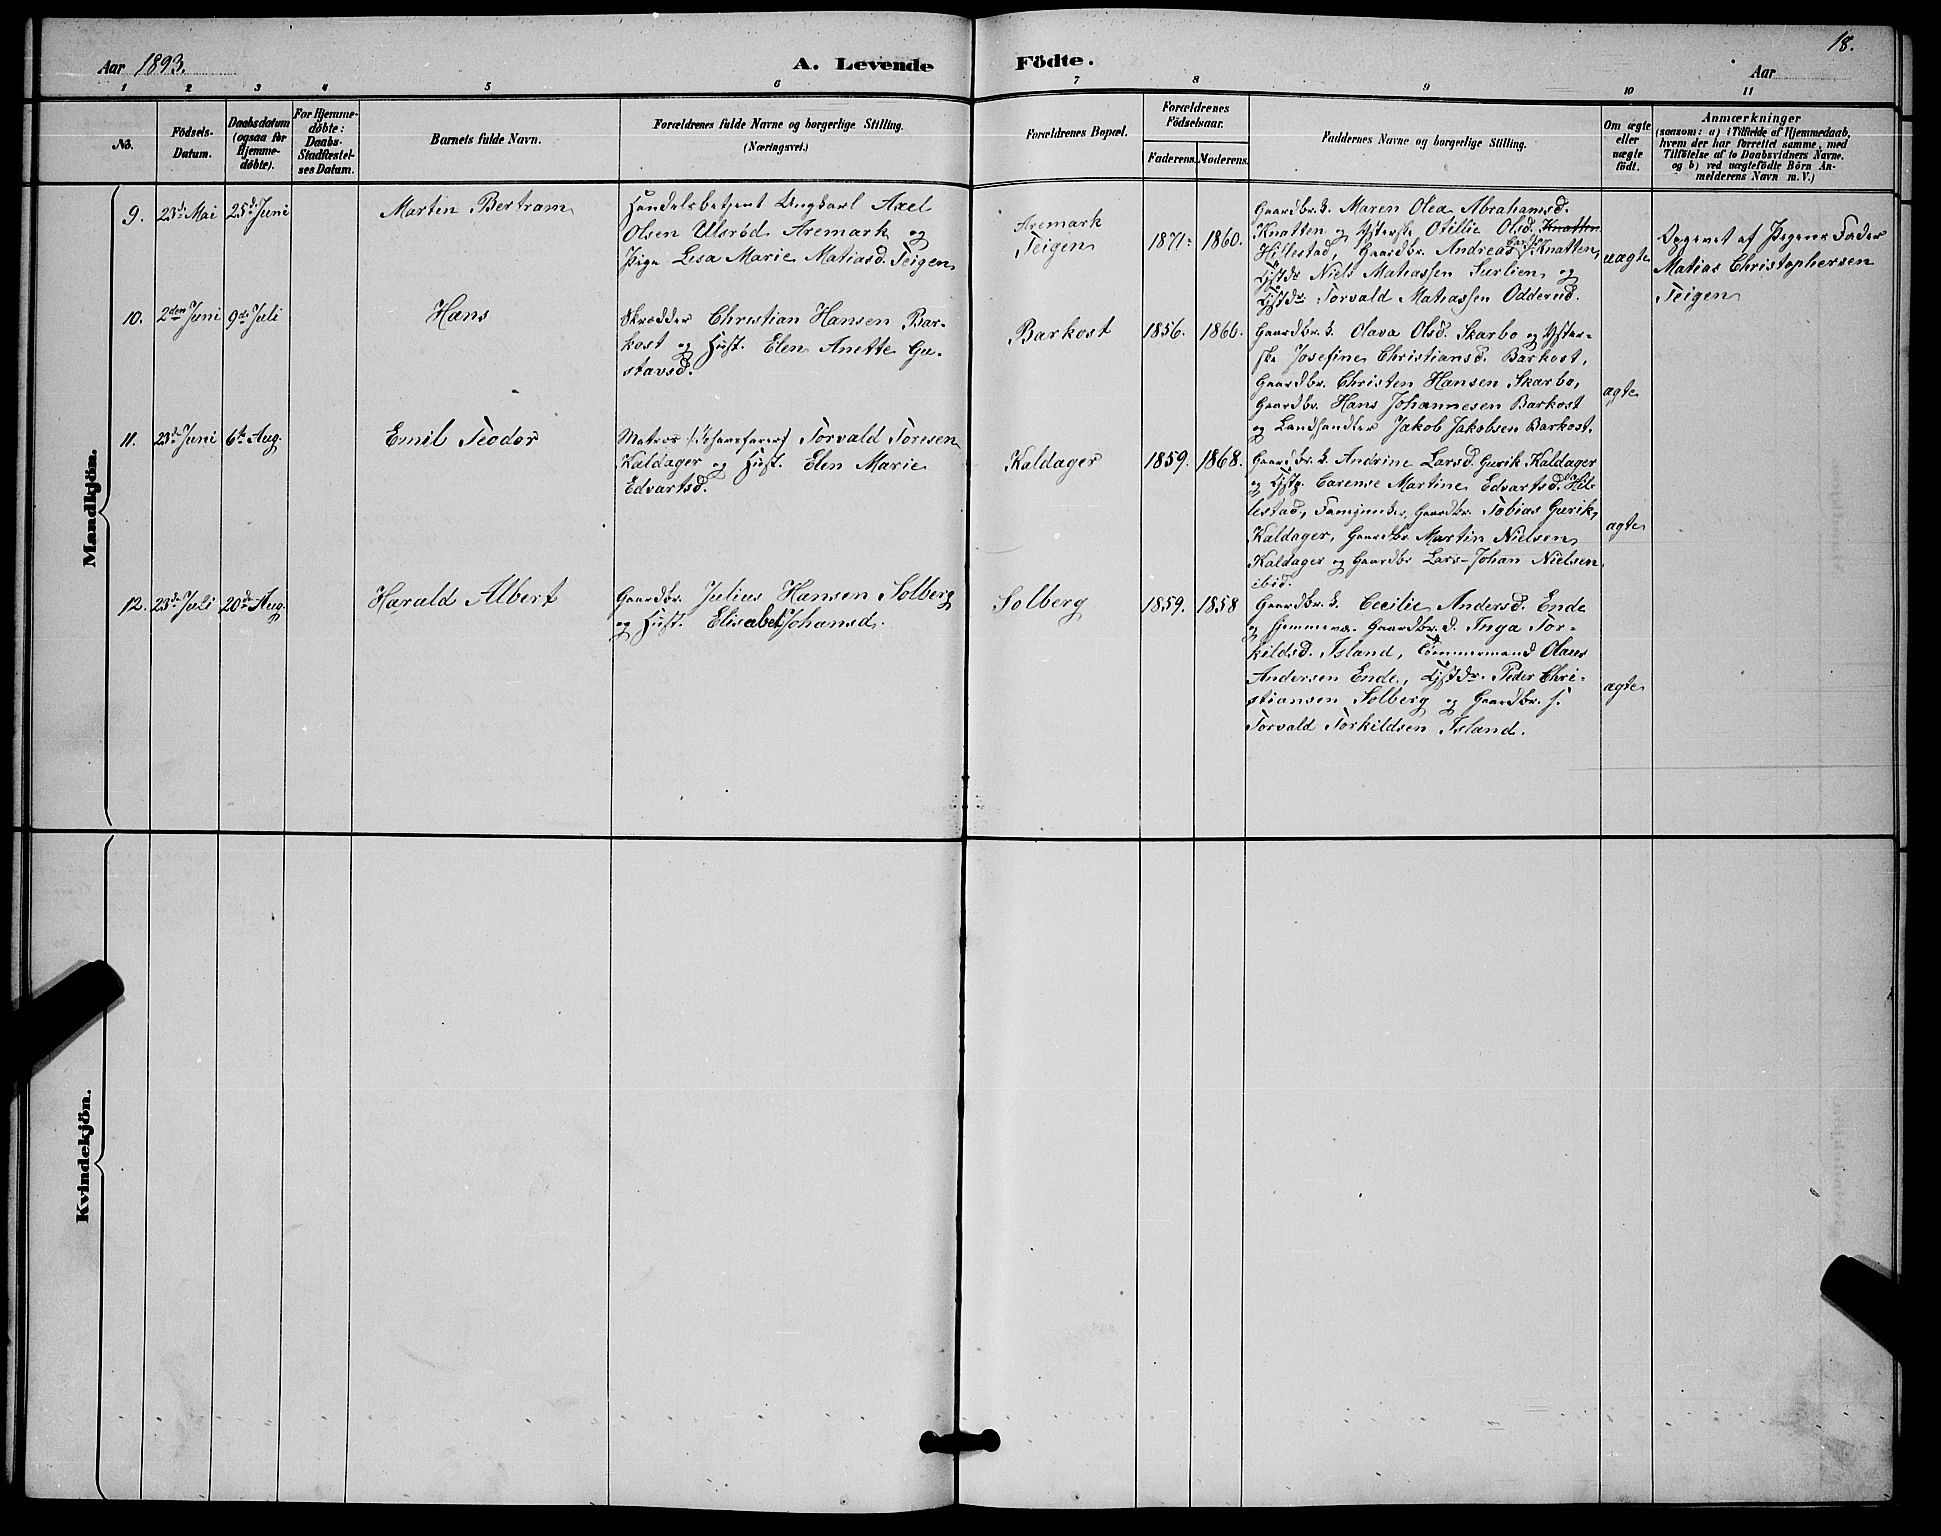 Aar 1893.
A. Levende Födte.
18.
Aar
1 2 3 4 5 6 7 8 9 10 11
No.
Födsels-
Datum.
Daabsdatum
(ogsaa for
Hjemme-
döbte).
For Hjemme-
döbte:
Daabs-
Stadfæstel-
ses Datum.
Barnets fulde Navn.
Forældrenes fulde Navne og borgerlige Stilling.
(Næringsvei.)
Forældrenes Bopæl.
Forældrenes
Födselsaar.
Faderens. Moderens.
Faddernes Navne og borgerlige Stilling.
Om ægte
eller
uægte
födt.
Anmærkninger
(saasom: a) i Tilfælde af Hjemmedaab,
hvem der har forrettet samme, med
Tilföielse af to Daabsvidners Navne.
og b) ved uægtefödte Börn An-
melderens Navn m. V.)
Mandkjön.
9. 23de Mai 25de Juni
Martin Bertram
Handelsbetjent Ungkarl Axel
Olsen Ulsröd Aremark og
Pige Lisa Marie Matiasd. Teigen
Aremark
Teigen
1871. 1860.
Gaardbr. k. Maren Olea Abrahamsd.
Knatten og Otillie Olsd. Knatten
Hillestad, Gaardbr. Andreas Knatten,
Niels Matiassen Surlien og
Torvald Matiassen Odderud.
uægte
Opgivet af Pigens Fader
Matias Christophersen
Teigen
10. 2den Juni 9de Juli
Hans
Skrædder Christian Hansen Bar-
kost og Hust. Elen Anette Gu-
stavsd.
Barkost
1856. 1866.
Gaardbr. k. Olava Olsd. Skarbo og
Josefine Christiansd. Barkost,
Gaardbr. Christen Hansen Skarbo,
Gaardbr. Hans Johannesen Barkost
og Landhandler Jakob Jakobsen Barkost.
ægte
11. 23de Juni 6te Aug.
Emil Teodor
Matros Torvald Toresen
Kaldager og Hust. Elen Marie
Edvartsd.
Kaldager
1859. 1868.
Gaardbr. k. Andrine Larsd. Gurik Kaldager
og Carense Martine Edvartsd. Hil-
lestad, Gaardbr. Tobias Gurik,
Kaldager, Gaardbr. Martin Nielsen,
Kaldager og Gaardbr Lars-Johan Nielsen
ibid.
ægte
12. 23de Juli 20de Aug.
Harald Albert
Gaardbr. Julius Hansen Solberg
og Hust. Elisabet Johansd.
Solberg
1859. 1858
Gaardbr. k. Cecilie Andersd. Ende
og hjemmeva. Gaardbr. d. Inga Tor-
kildsd. Island, Tömmermand Olaus
Andersen Ende, Peder Chri-
stiansen Solberg og Gaardbr. s.
Torvald Torkildsen Island.
ægte
Kvindekjön.